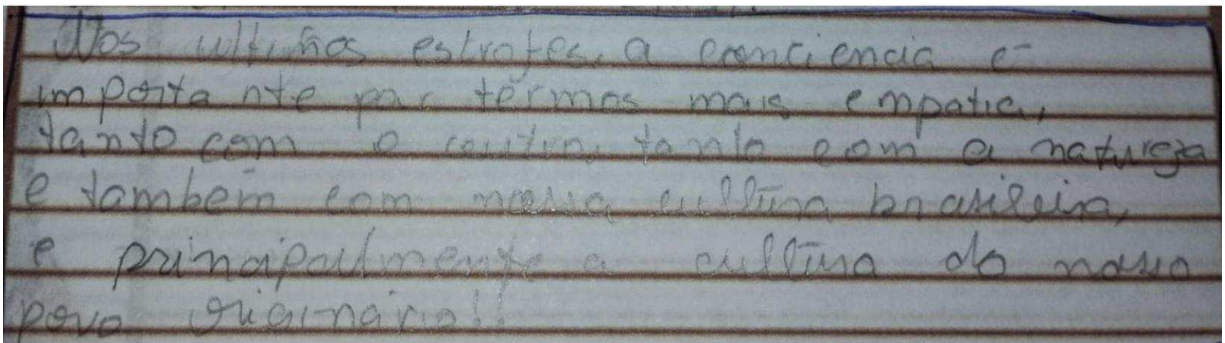 Nos ultimas estrofes, a conciencia é
importante por termos mais empatia,
tanto com o outro, tanto com a natureza
e também com nossa cultura brasileira,
e principalmente a cultura do nosso
povo originário!!